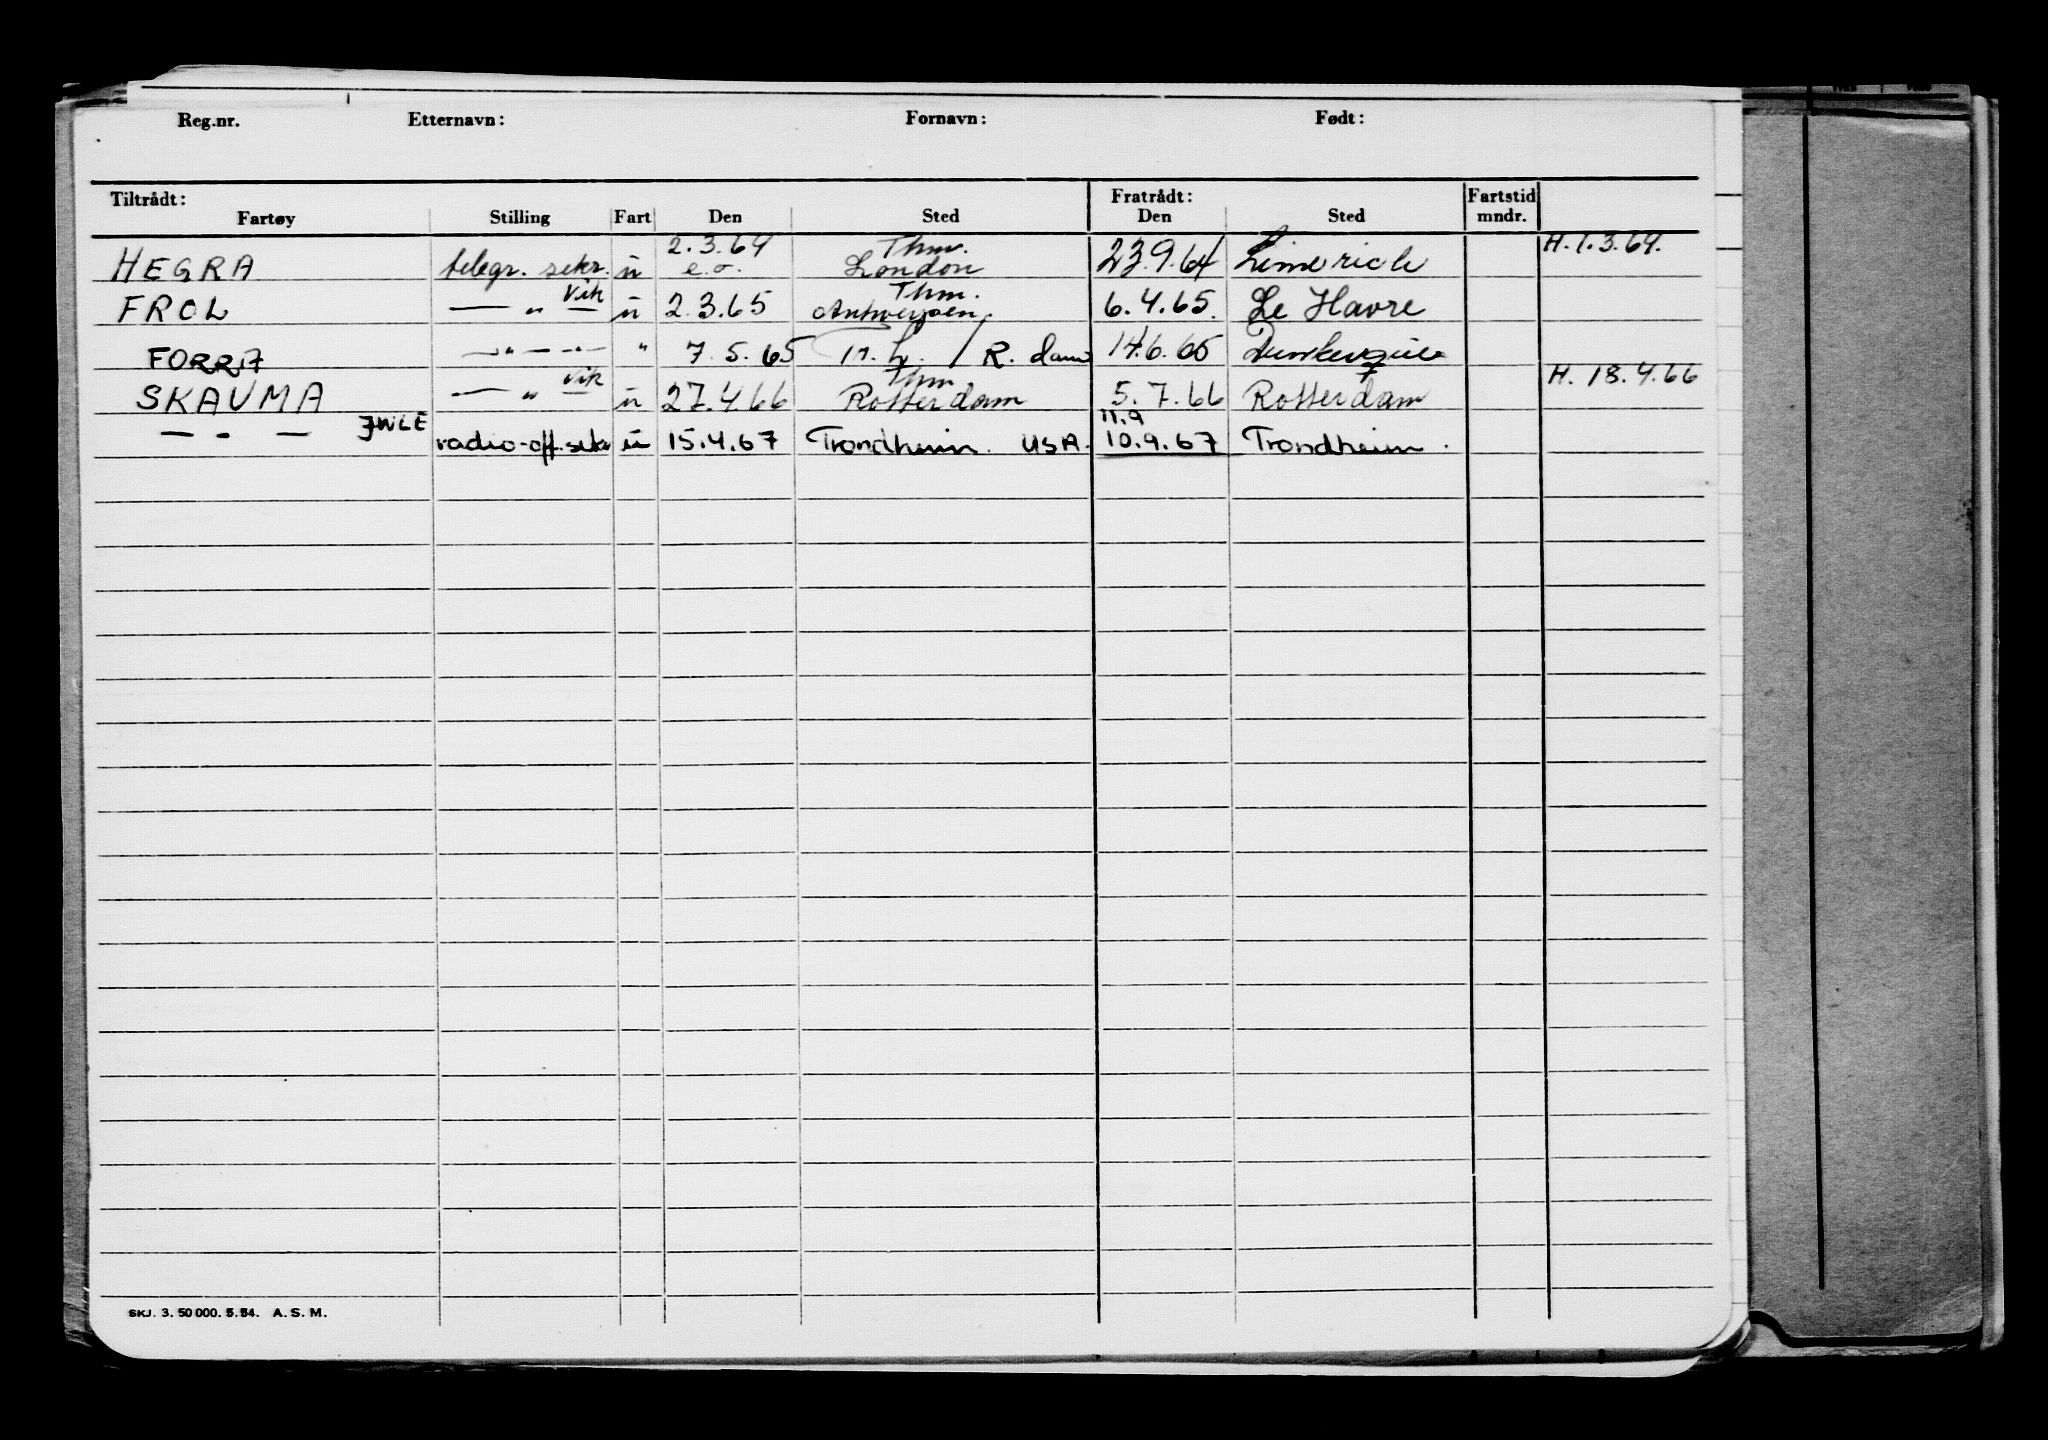 Reg.nr. Etternavn: Fornavn: Født:
Tiltrådt: Fratrådt: Fartstid
Fartøy Stilling Fart Den Sted Den Sted mndr.
2.3.64 Thm. H. 1.3.64.
HEGRA telegr. sekr. u e.o. London 23.9.64 Limerick
Vik Thm.
FROL — " — u 2.3.65 Antwerpen. 6.4.65. Le Havre
FORRA — " — " — " 7.5.65 / R. dam 14.6.65 Dunkerque
Vik Thm. H. 18.4.66
SKAUMA — " — u 27.4.66 Rotterdam 5.7.66 Rotterdam
JWLE 11.9
— " — radio-off. sekr u 15.4.67 Trondheim. USA. 10.9.67 Trondheim.
SKJ. 3. 50 000. 5. 54. A. S. M.